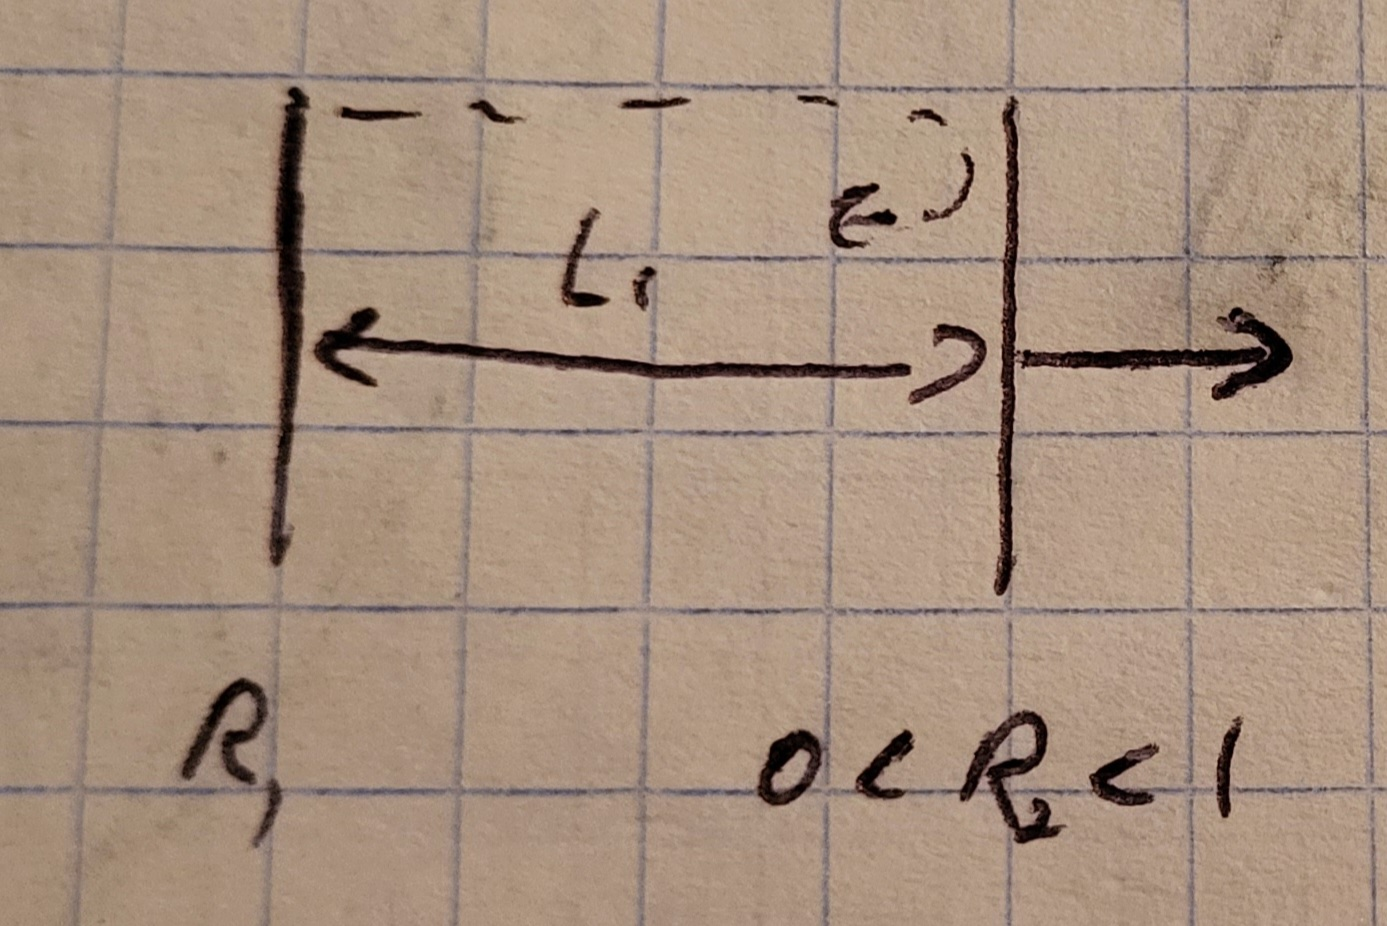 L₁
R₁
0 < R₂ < 1